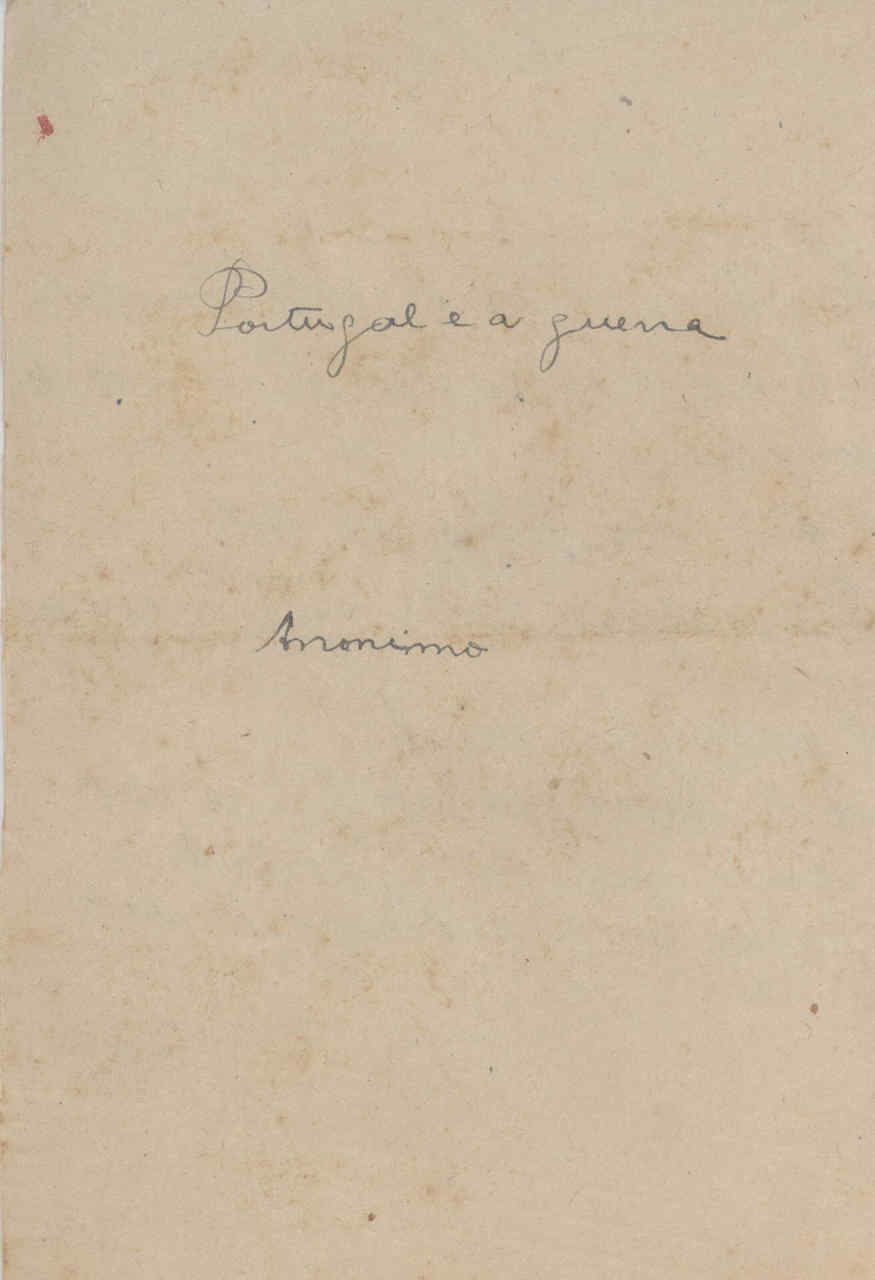 Portugal e a guerra
Anonimo